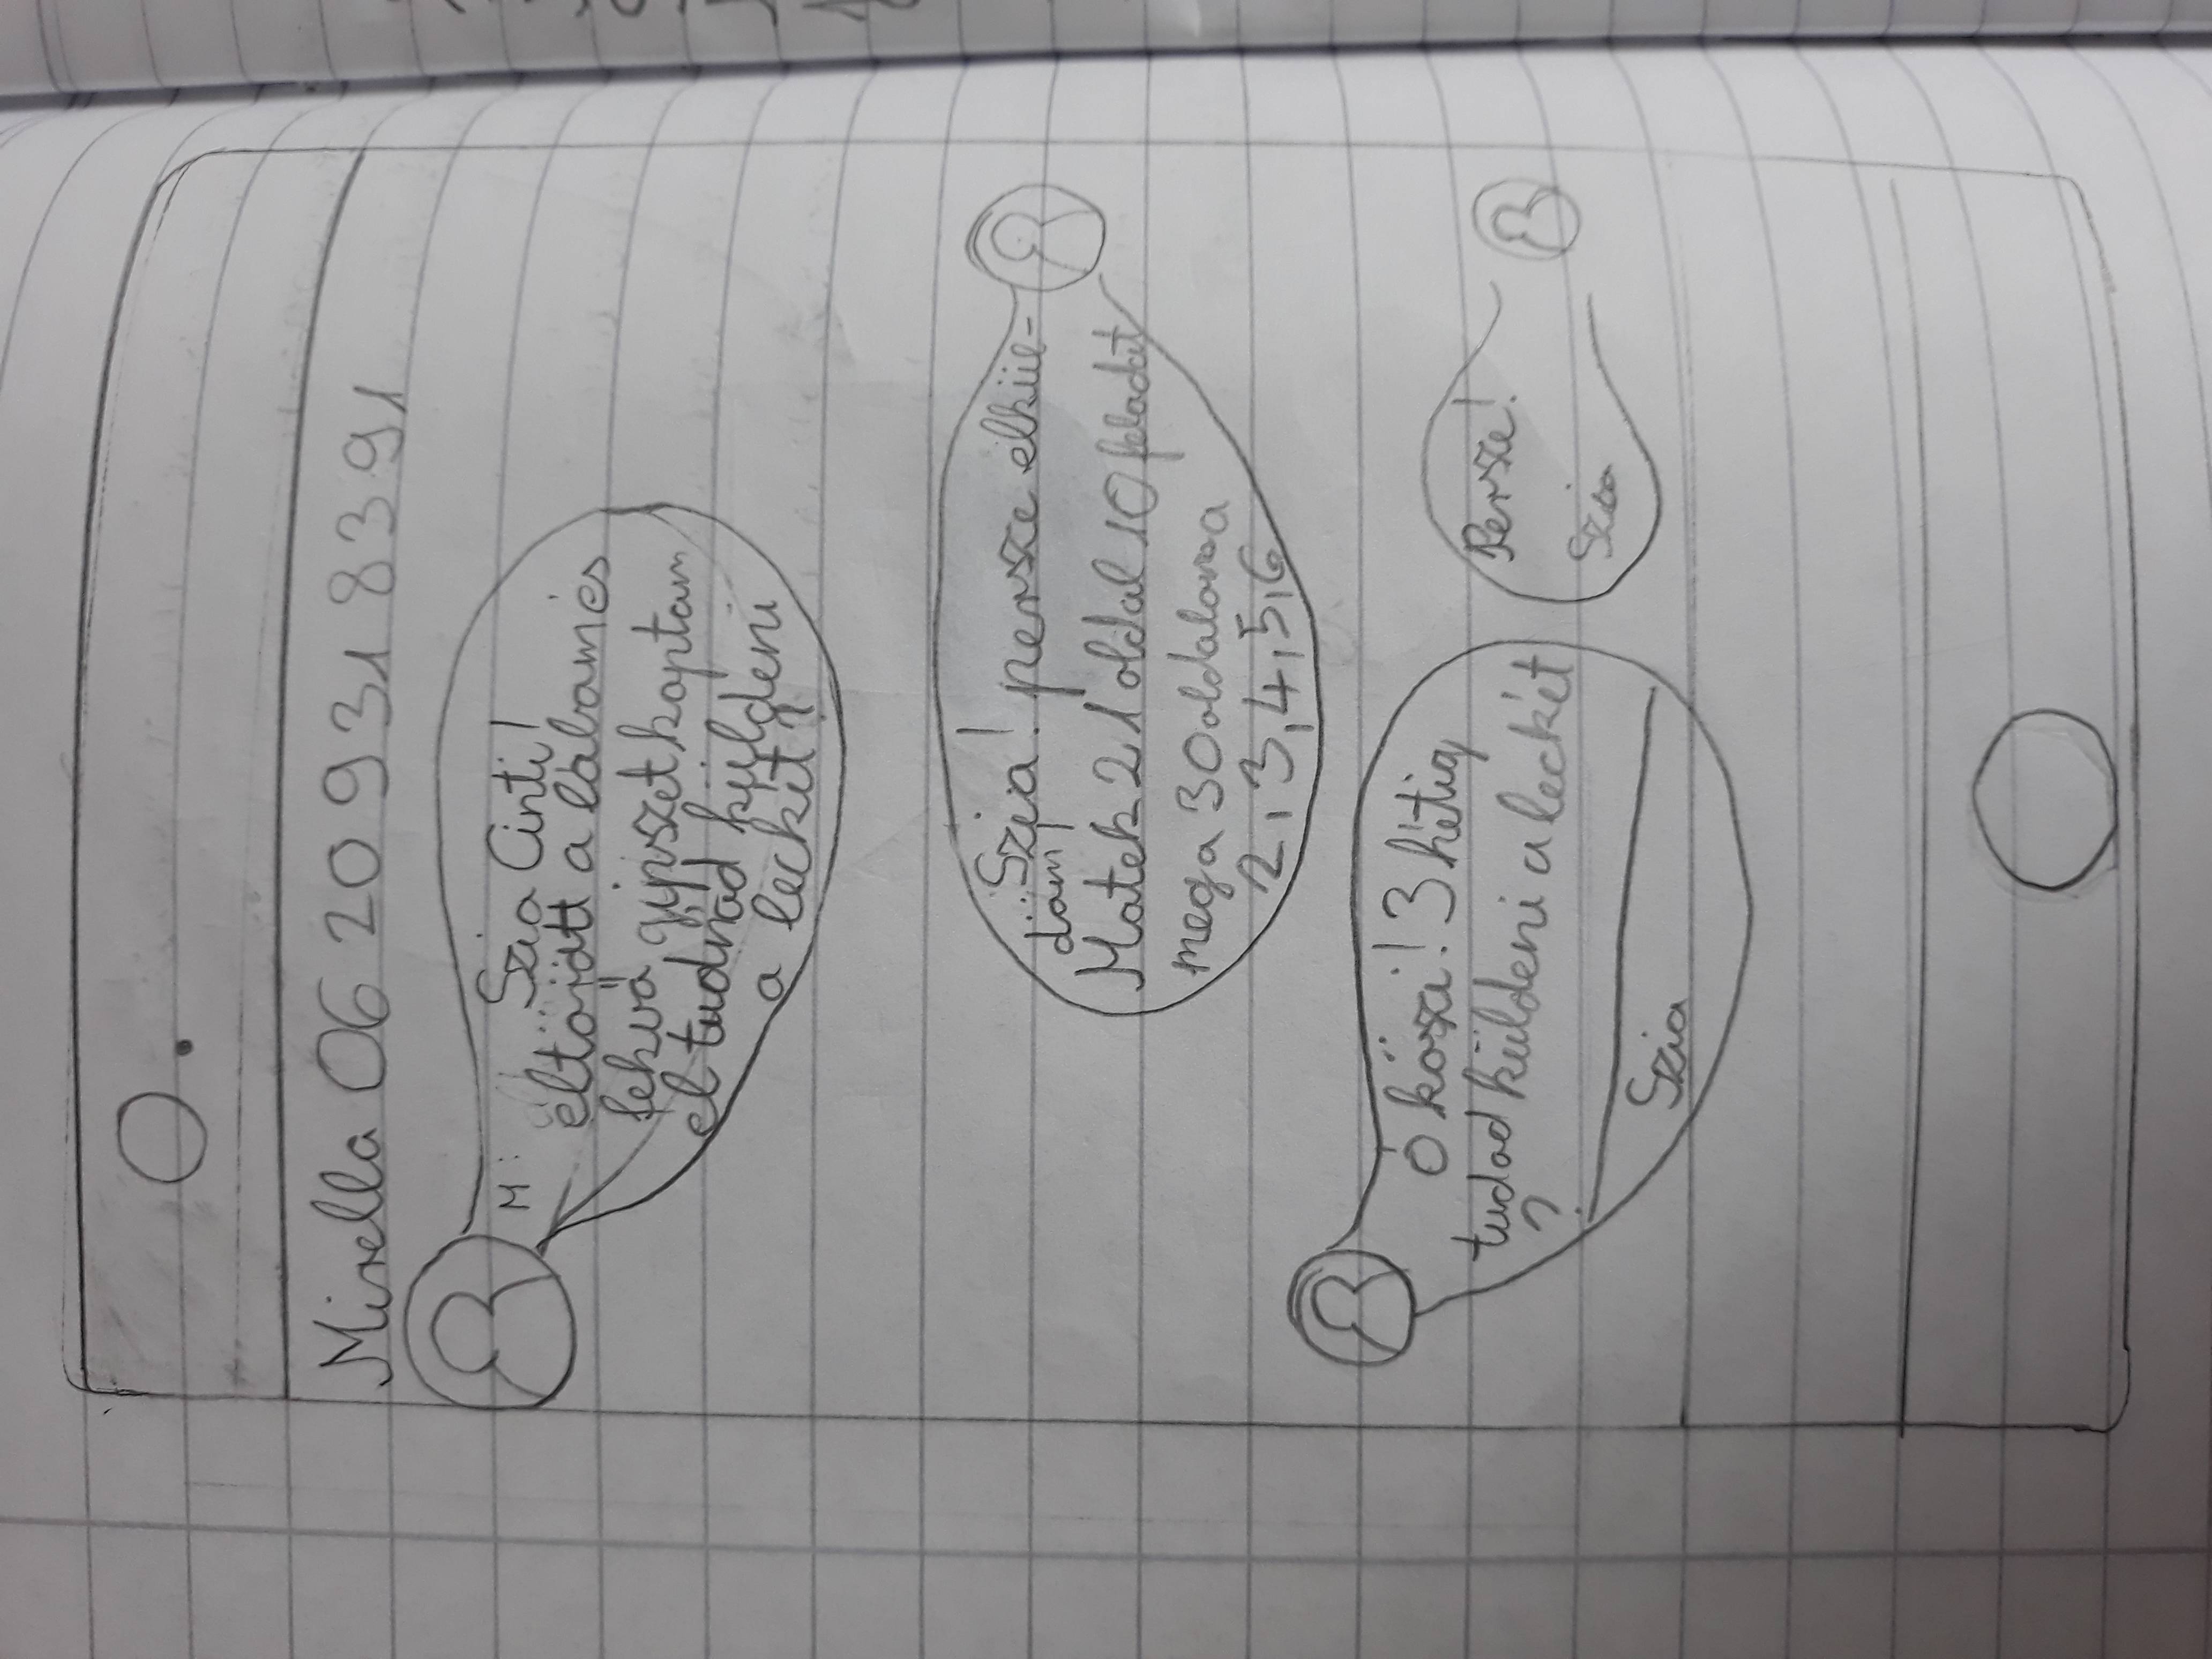 Mirella 06 20 931 8391
M: Szia Cinti!
eltörött a lábamés
fekvő gipszetkaptam
el tudnád küldeni
a leckét?
Szia! persze elkül-
döm!
Matek 21 oldal 10 feladat
meg a 30 oldalona
2,3,4,5,6
ó köszi! 3 hétig
tudod küldeni a leckét
?
Szia
Persze!
Szia